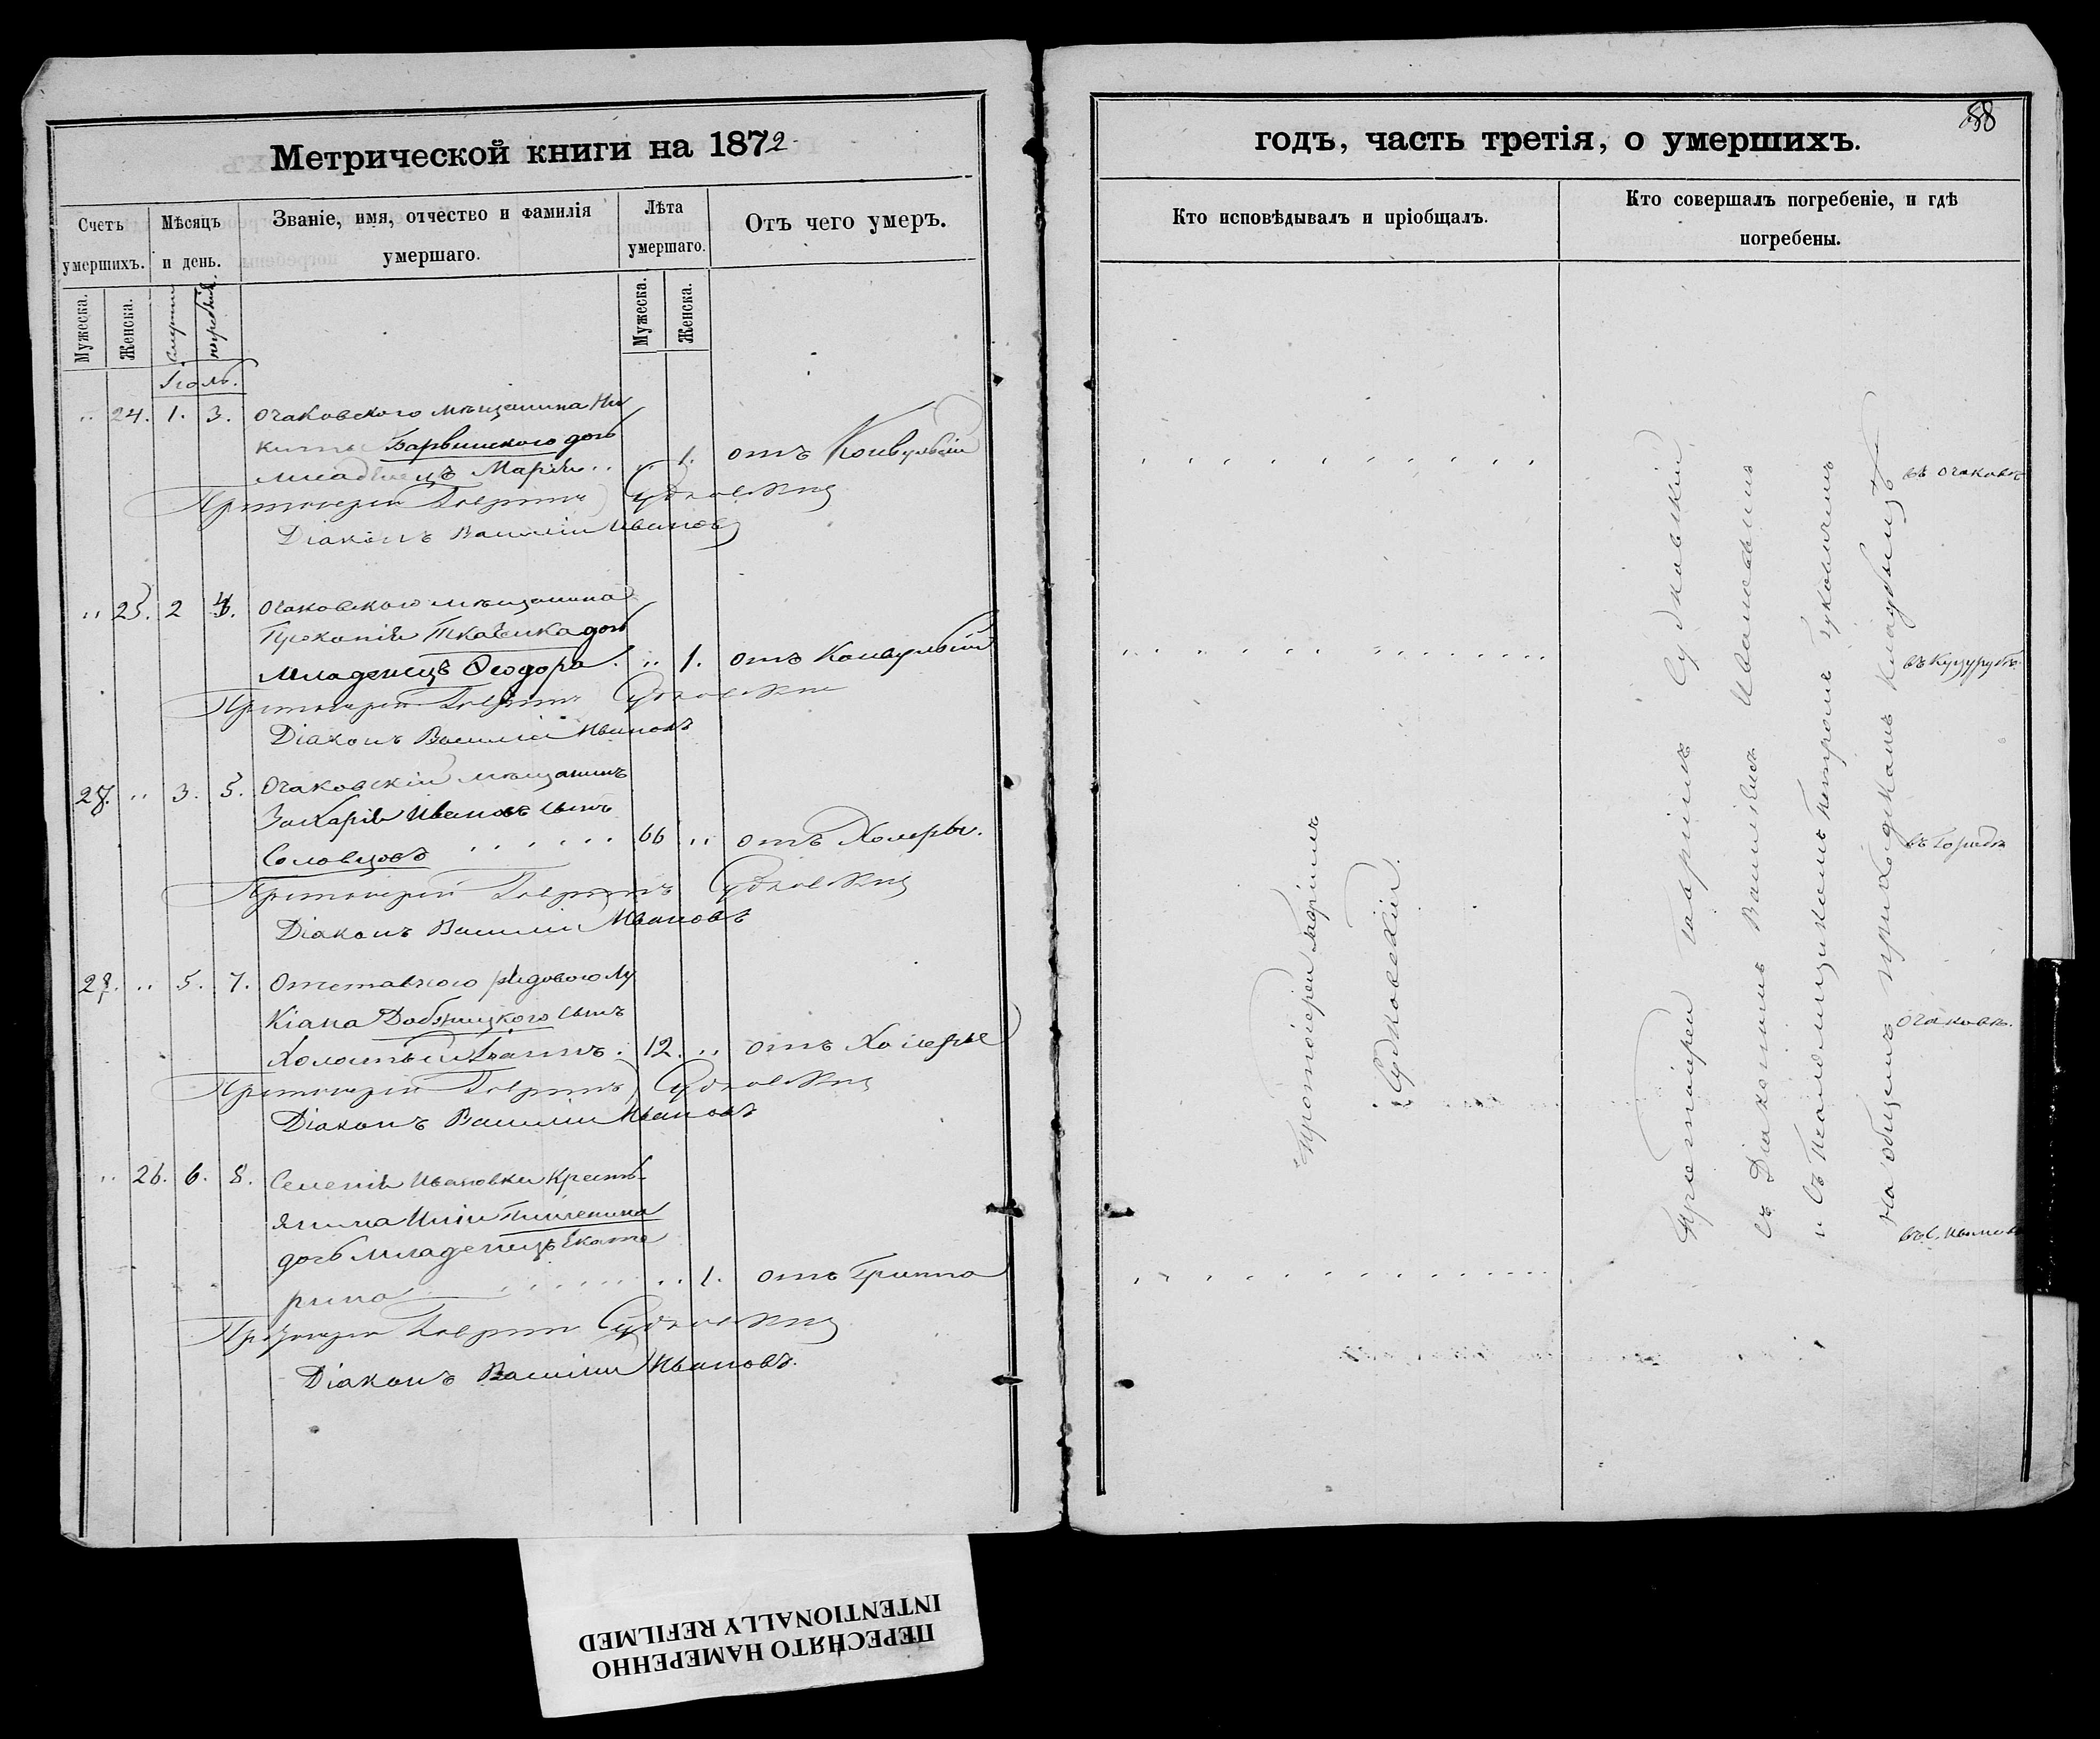 Метрической книги на 1872
Счетъ умершихъ.
Мѣсяцъ и день.
Званіе, имя, отчество и фамилія умершаго.
Лѣта умершаго.
Отъ чего умеръ.
Мужеска.
Женска.
смерти
погребенія.
Мужеска.
Женска.
Іюль.
„ 24. 1. 3. Очаковского мѣщанина Ни
киты Барвинского дочь
младенецъ Марія „ 1. отъ Конвульсіи
Протоіерей Гавріилъ Судковскій
Діаконъ Василій Ивановъ
„ 25. 2 4. Очаковского мѣщанина
Прокопія Ткаченка дочь
младенецъ Ѳеодора. „ 1. отъ Конвульсіи
Протоіерей Гавріилъ Судковскій
Діаконъ Василій Ивановъ
27. „ 3. 5. Очаковскій мѣщанинъ
Захарія Ивановъ сынъ
Соловцовъ 66 „ отъ Холеры.
Протоіерей Гавріилъ Судковскій
Діаконъ Василій Ивановъ
28. „ 5. 7. Отставного рядового Лу
кіана сынъ
Холостъ 12. „ отъ Холеры
Протоіерей Гавріилъ Судковскій
Діаконъ Василій Ивановъ
„ 26. 6. 8. Селенія Ивановки Кресть-
янина
дочь младенецъ Екате
рина „ 1. отъ Гриппа
Протоіерей Гавріилъ Судковскій
Діаконъ Василій Ивановъ.
88
годъ, часть третія, о умершихъ.
Кто исповѣдывалъ и пріобщалъ.
Кто совершалъ погребеніе, и гдѣ погребены.
Протоіерей Гавріилъ
Судковскій.
Протоіерей Гавріилъ Судковскій
съ Діакономъ Василіемъ Ивановымъ
и съ Псаломщикомъ Петромъ
на общемъ приходскомъ кладбищѣ
въ Очаковѣ
въ Куцурубѣ
Очаковѣ.
въ с. Ивановкѣ
ПЕРЕСНЯТО НАМЕРЕННО
INTENTIONALLY REFILMED